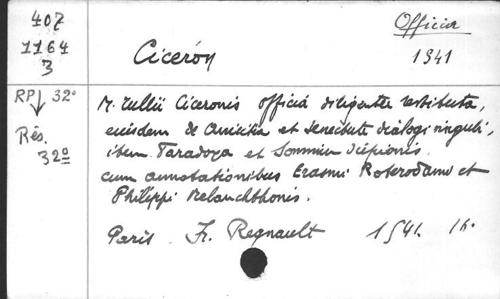 407
1164
3
Officia
1541
Cicerón
RP ↓ 32°
Rés.
32º
M. Tullii Ciceronis officia diligenter restituta,
eiusdem de Amicitia et Senectute dialogi singuli,
item Paradoxa et Somnium Scipionis.
cum annotationibus Erasmi Roterodami et
Philippi Melanchthonis.
Paris. Fr. Regnault 1541. 16.